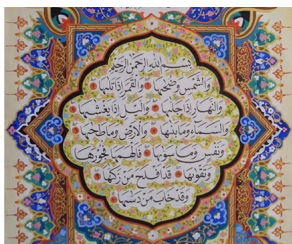 بسم الله الرحمن الرحیم
والشمس وضحیها والقمر اذا تلیها
والنهار اذا جلیها واللیل اذا یغشیها
والسماء وما بنیها والارض وما طحیها
ونفس وما سویها فالهمها فجورها
وتقویها قد افلح من زکیها
وقد خاب من دسیها